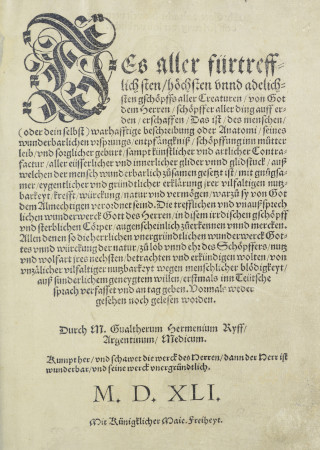 DEs aller fürtreff-
lichsten / höchsten vnnd adelich-
sten gschöpffs aller Creaturen / von Got
dem Herren / schöpffer aller ding auff er-
den / erschaffen / Das ist / des menschen /
(oder dein selbst) warhafftige beschreibung oder Anatomi / seines
wunderbarlichen vrsprungs / entpfängknuß / schöpffung inn mütter
leib / vnd sorglicher geburt / sampt künstlicher vnd artlicher Contra-
factur / aller eüsserlicher vnd innerlicher glider vnnd glidstuck / auß
welchen der mensch wunderbarlich zůsamen gesetzt ist / mit gnůgsa-
mer / eygentlicher vnd gründtlicher erklärung jrer vilfaltigen nutz-
barkeyt / krefft / würckung / natur vnd vermögen / warzů sy von Got
dem Almechtigen verordnet seind. Die trefflichen vnd vnaußsprech
lichen wunderwerck Got des Herren / in disem irrdischen gschöpff
vnd sterblichen Cörper / augenscheinlich zůerkennen vnnd mercken.
Allen denen so die herrlichen vnergründtlichen wunderwerck Got-
tes vnnd würckung der natur / zů lob vnnd ehr des Schöpffers / nutz
vnd wolfart jres nechsten / betrachten vnd erkündigen wolten / von
vnzälicher vilfaltiger nutzbarkeyt wegen menschlicher blödigkeyt /
auß sunderlichem geneygtem willen / erstmals inn Teütsche
sprach verfasset vnd an tag geben. Vormals weder
gesehen noch gelesen worden.
Durch M. Gualtherum Hermenium Ryff /
Argentinum / Medicum.
Kumpt her / vnd schawet die werck des Herren / dann der Herr ist
wunderbar / vnd seine werck vnergründtlich.
M. D. XLI.
Mit Künigklicher Maie. Freiheyt.